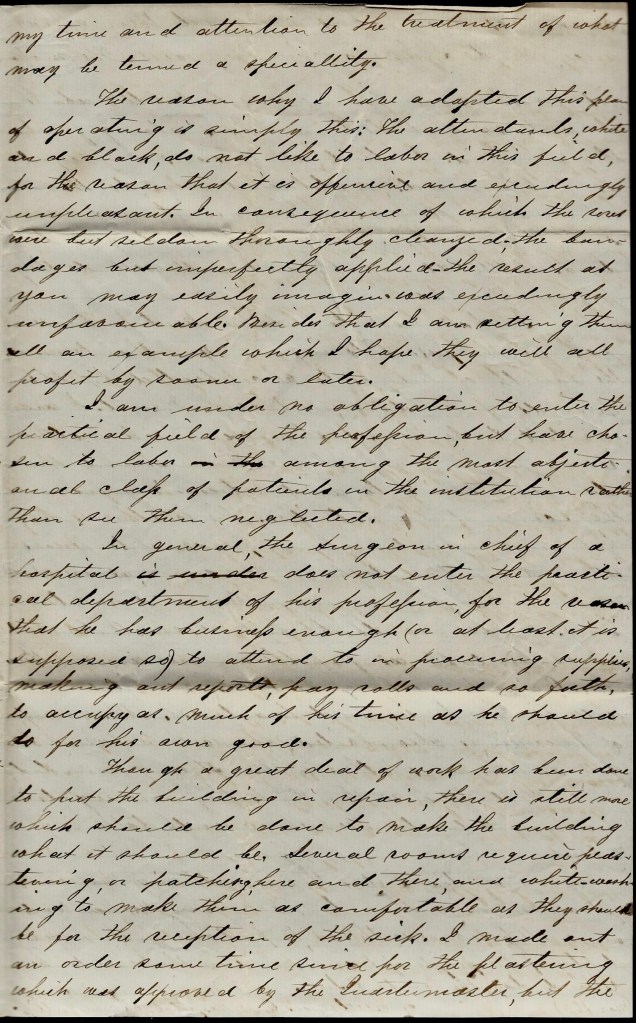 my time and attention to the treatment of what
may be termed a speciallity.
The reason why I have adopted this plan
of operating is simply this: the attendants, white
and black, do not like to labor in this field,
for the reason that it is offensive and excedingly
unpleasant. In consequence of which the sores
were but seldom thoroughly cleanzed, the ban-
dages but imperfectly applied - the result as
you may easily imagin was excedingly
unfavourable. Besides that I am setting them
all an example which I hope they will all
profit by sooner or later.
I am under no obligation to enter the
practical field of the profession, but have cho-
sen to labor in the among the most objecti-
onal class of patients in the institution rather
than see them neglected.
In general, the surgeon in chief of a
hospital is under does not enter the practi-
cal department of his profession, for the reason
that he has business enough (or at least it is
supposed so) to attend to in procuring supplies,
making out reports, pay rolls and so forth,
to occupy as much of his time as he should
do for his own good.
Though a great deal of work has been done
to put the building in repair, there is still more
which should be done to make the building
what it should be. Several rooms require plas-
tering, or patching here and there, and white-wash-
ing to make them as comfortable as they should
be for the reception of the sick. I made out
an order some time since for the plastering
which was approved by the Quartermaster, but the